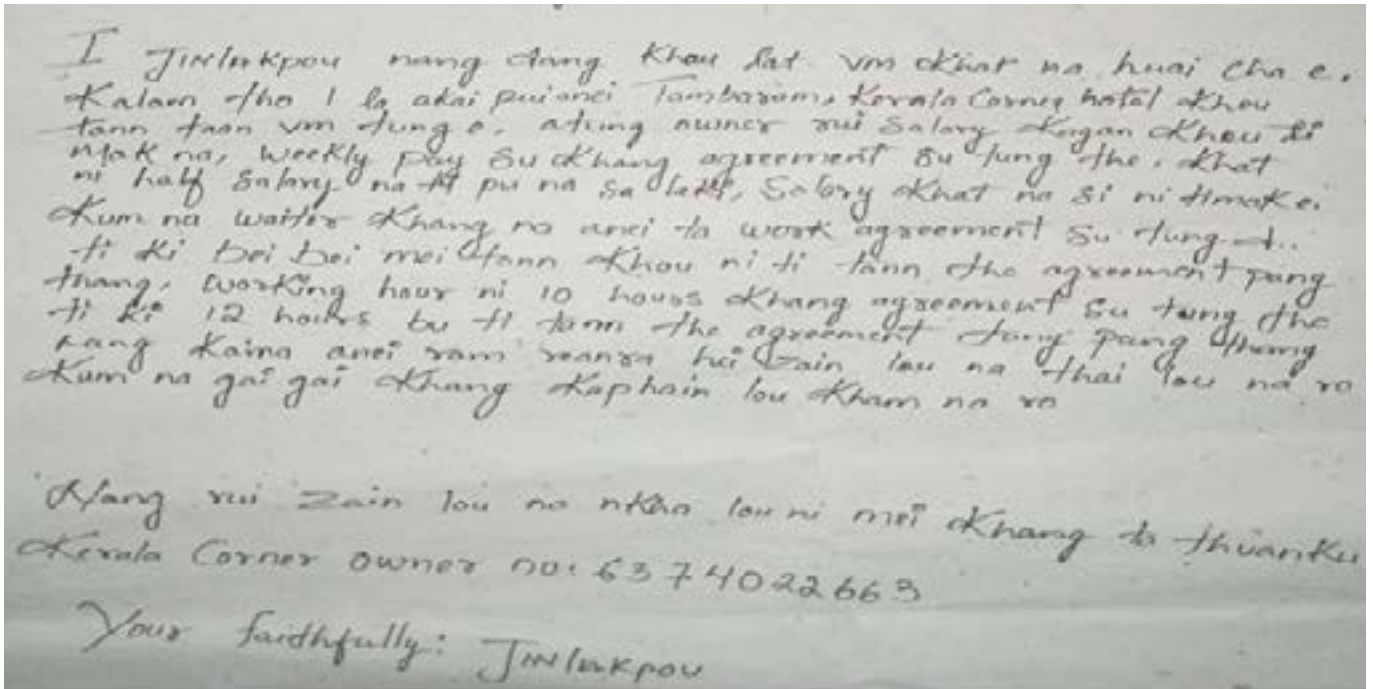 I JINlukpou nang dang Khou lat vm Khat na huai cha e.
Kalam tho 1 la akai pui anei Tambaram, Kerala Corner hotal Khou
tann taan vm tung e. atung owner rui Salary Kagan Khou li
mak na, weekly pay Su Khang agreement Su tung the. Khat
ni half Salary na ti pu na sa, Salary Khat na si ni timak e.
Kum na waiter Khang na anei ta work agreement Su tung
ti ki bei bei mei tann Khou ni ti tann the agreement pang
thang. Working hour ni 10 hours Khang agreement Su tung the
ti ki 12 hours bu ti tann the agreement tang pang thang
nang Kaina anei ram reanra hei zain lou na thai lou na ro
Kum na gai gai Khang Kaphain lou Kham na ro
Nang rui zain lou na nkha lou ni mei Khang ta thuanku
Kerala Corner owner no: 6374022663
Your faidhfully: JINlukpou